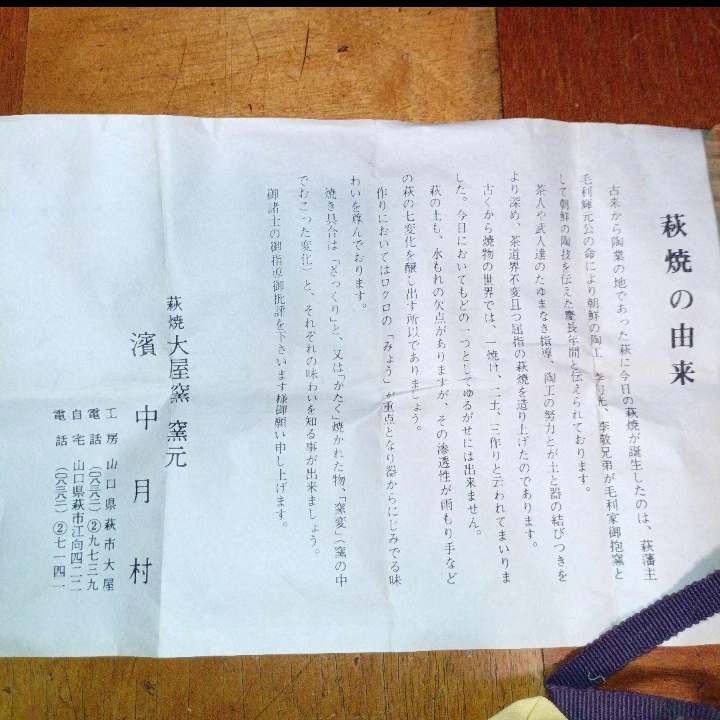 萩焼の由来
古来から陶業の地であった萩に今日の萩焼が誕生したのは、萩藩主
毛利輝元公の命により朝鮮の陶工 李勺光、李敬兄弟が毛利家御抱窯と
して朝鮮の陶技を伝えた慶長年間と伝えられております。
茶人や武人達のたゆまなき指導、陶工の努力とが土と器の結びつきを
より深め、茶道界不変且つ屈指の萩焼を造り上げたのであります。
古くから焼物の世界では、一焼け、二土、三作りと云われてまいりま
した。今日においてもどの一つとしてゆるがせには出来ません。
萩の土も、水もれの欠点がありますが、その滲透性が雨もり手など
の萩の七変化を醸し出す所以でありましょう。
作りにおいてはロクロの「みょう」が重点となり器からにじみでる味
わいを尊んでおります。
焼き具合は「ざっくり」と、又は「かたく」焼かれた物、「窯変」(窯の中
でおこった変化)と、それぞれの味わいを知る事が出来ましょう。
御諸士の御指導御批評を下さいます様御願い申し上げます。
萩焼 大屋窯 窯元
濱中月村
工房 山口県萩市大屋
電話 (〇八三八二)②九七三九
自宅 山口県萩市江向四二二
電話 (〇八三八二)②七一四一